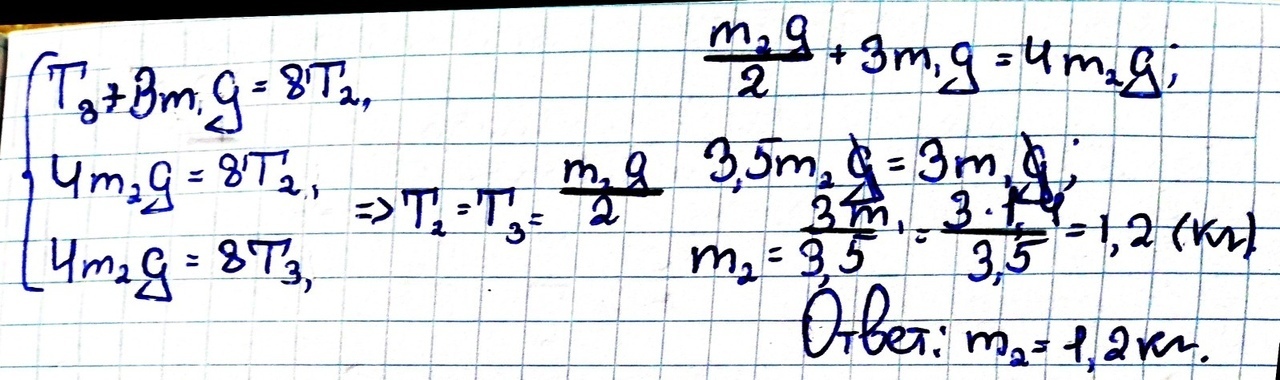 T₃ + 3m₁g = 8T₂,
4m₂g = 8T₂,
4m₂g = 8T₃,
=> T₂ = T₃ = m₂g/2
m₂g/2 + 3m₁g = 4m₂g;
3,5m₂g = 3m₁g;
m₂ = 3m₁/3,5 = 3·1,4/3,5 = 1,2 (кг)
Ответ: m₂ = 1,2 кг.